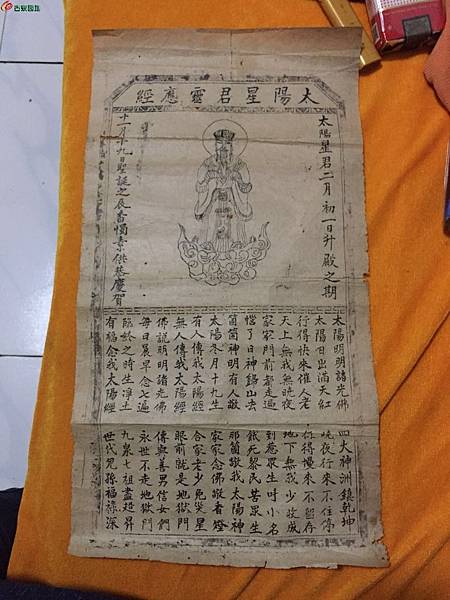 古泉園地
太陽星君靈應經
太陽星君二月初一日升殿之期
十一月十九日聖誕之辰香燭素供恭慶賀
太陽明明諸光佛 四大神洲鎮乾坤
太陽日出滿天紅 曉夜行來不住停
行得快來催人老 行得慢來不留存
天上無我無曉夜 地下無我少收成
家家門前都走過 到惹眾生叫小名
惱了日神歸山去 餓死黎民苦眾生
箇箇神明有人敬 那箇敬我太陽神
太陽冬月十九生 家家念佛敬香燈
有人傳我太陽經 合家老少免災星
無人傳我太陽經 眼前就是地獄門
佛説明明諸光佛 傳與善男信女們
每日晨早念七遍 永世不走地獄門
臨終之時生淨土 九泉七祖盡超昇
有福念我太陽經 世代兒孫福祿深